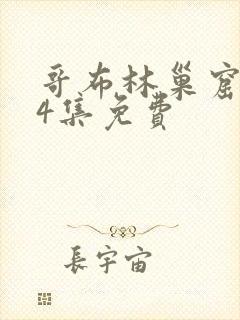 哥布林巢窟
4集免費
長宇宙